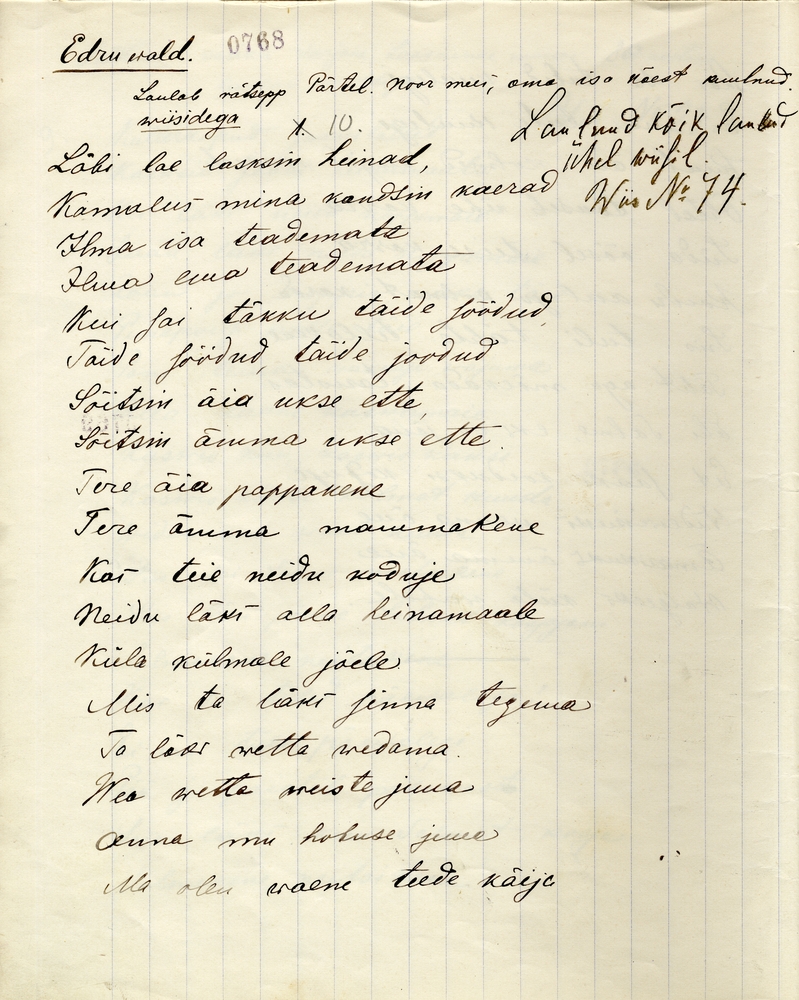 Edru wald.
0768
Laulab rätsepp Pärtel. noor mees, oma isa käest kuulnud.
wiisidega
1. 10.
Laulnud kõik laulud
ühel wiisil.
Wiis № 74.
Läbi lae lasksin heinad,
Kamalus mina kandsin kaerad
Ilma isa teademata
Ilma ema teademata
Kui sai täkku täide söödud,
Täide söödud, täide joodud
Sõitsin äia ukse ette,
Sõitsin ämma ukse ette.
Tere äia pappakene
Tere ämma mammakene
Kas teie neidu koduje
Neidu läks alla heinamaale
Küla külmale jõele
Mis ta läks sinna tegema
Ta läks wetta wedama.
Wea wetta weiste juua
Anna mu hobuse juua
Ma olen waene teede käija